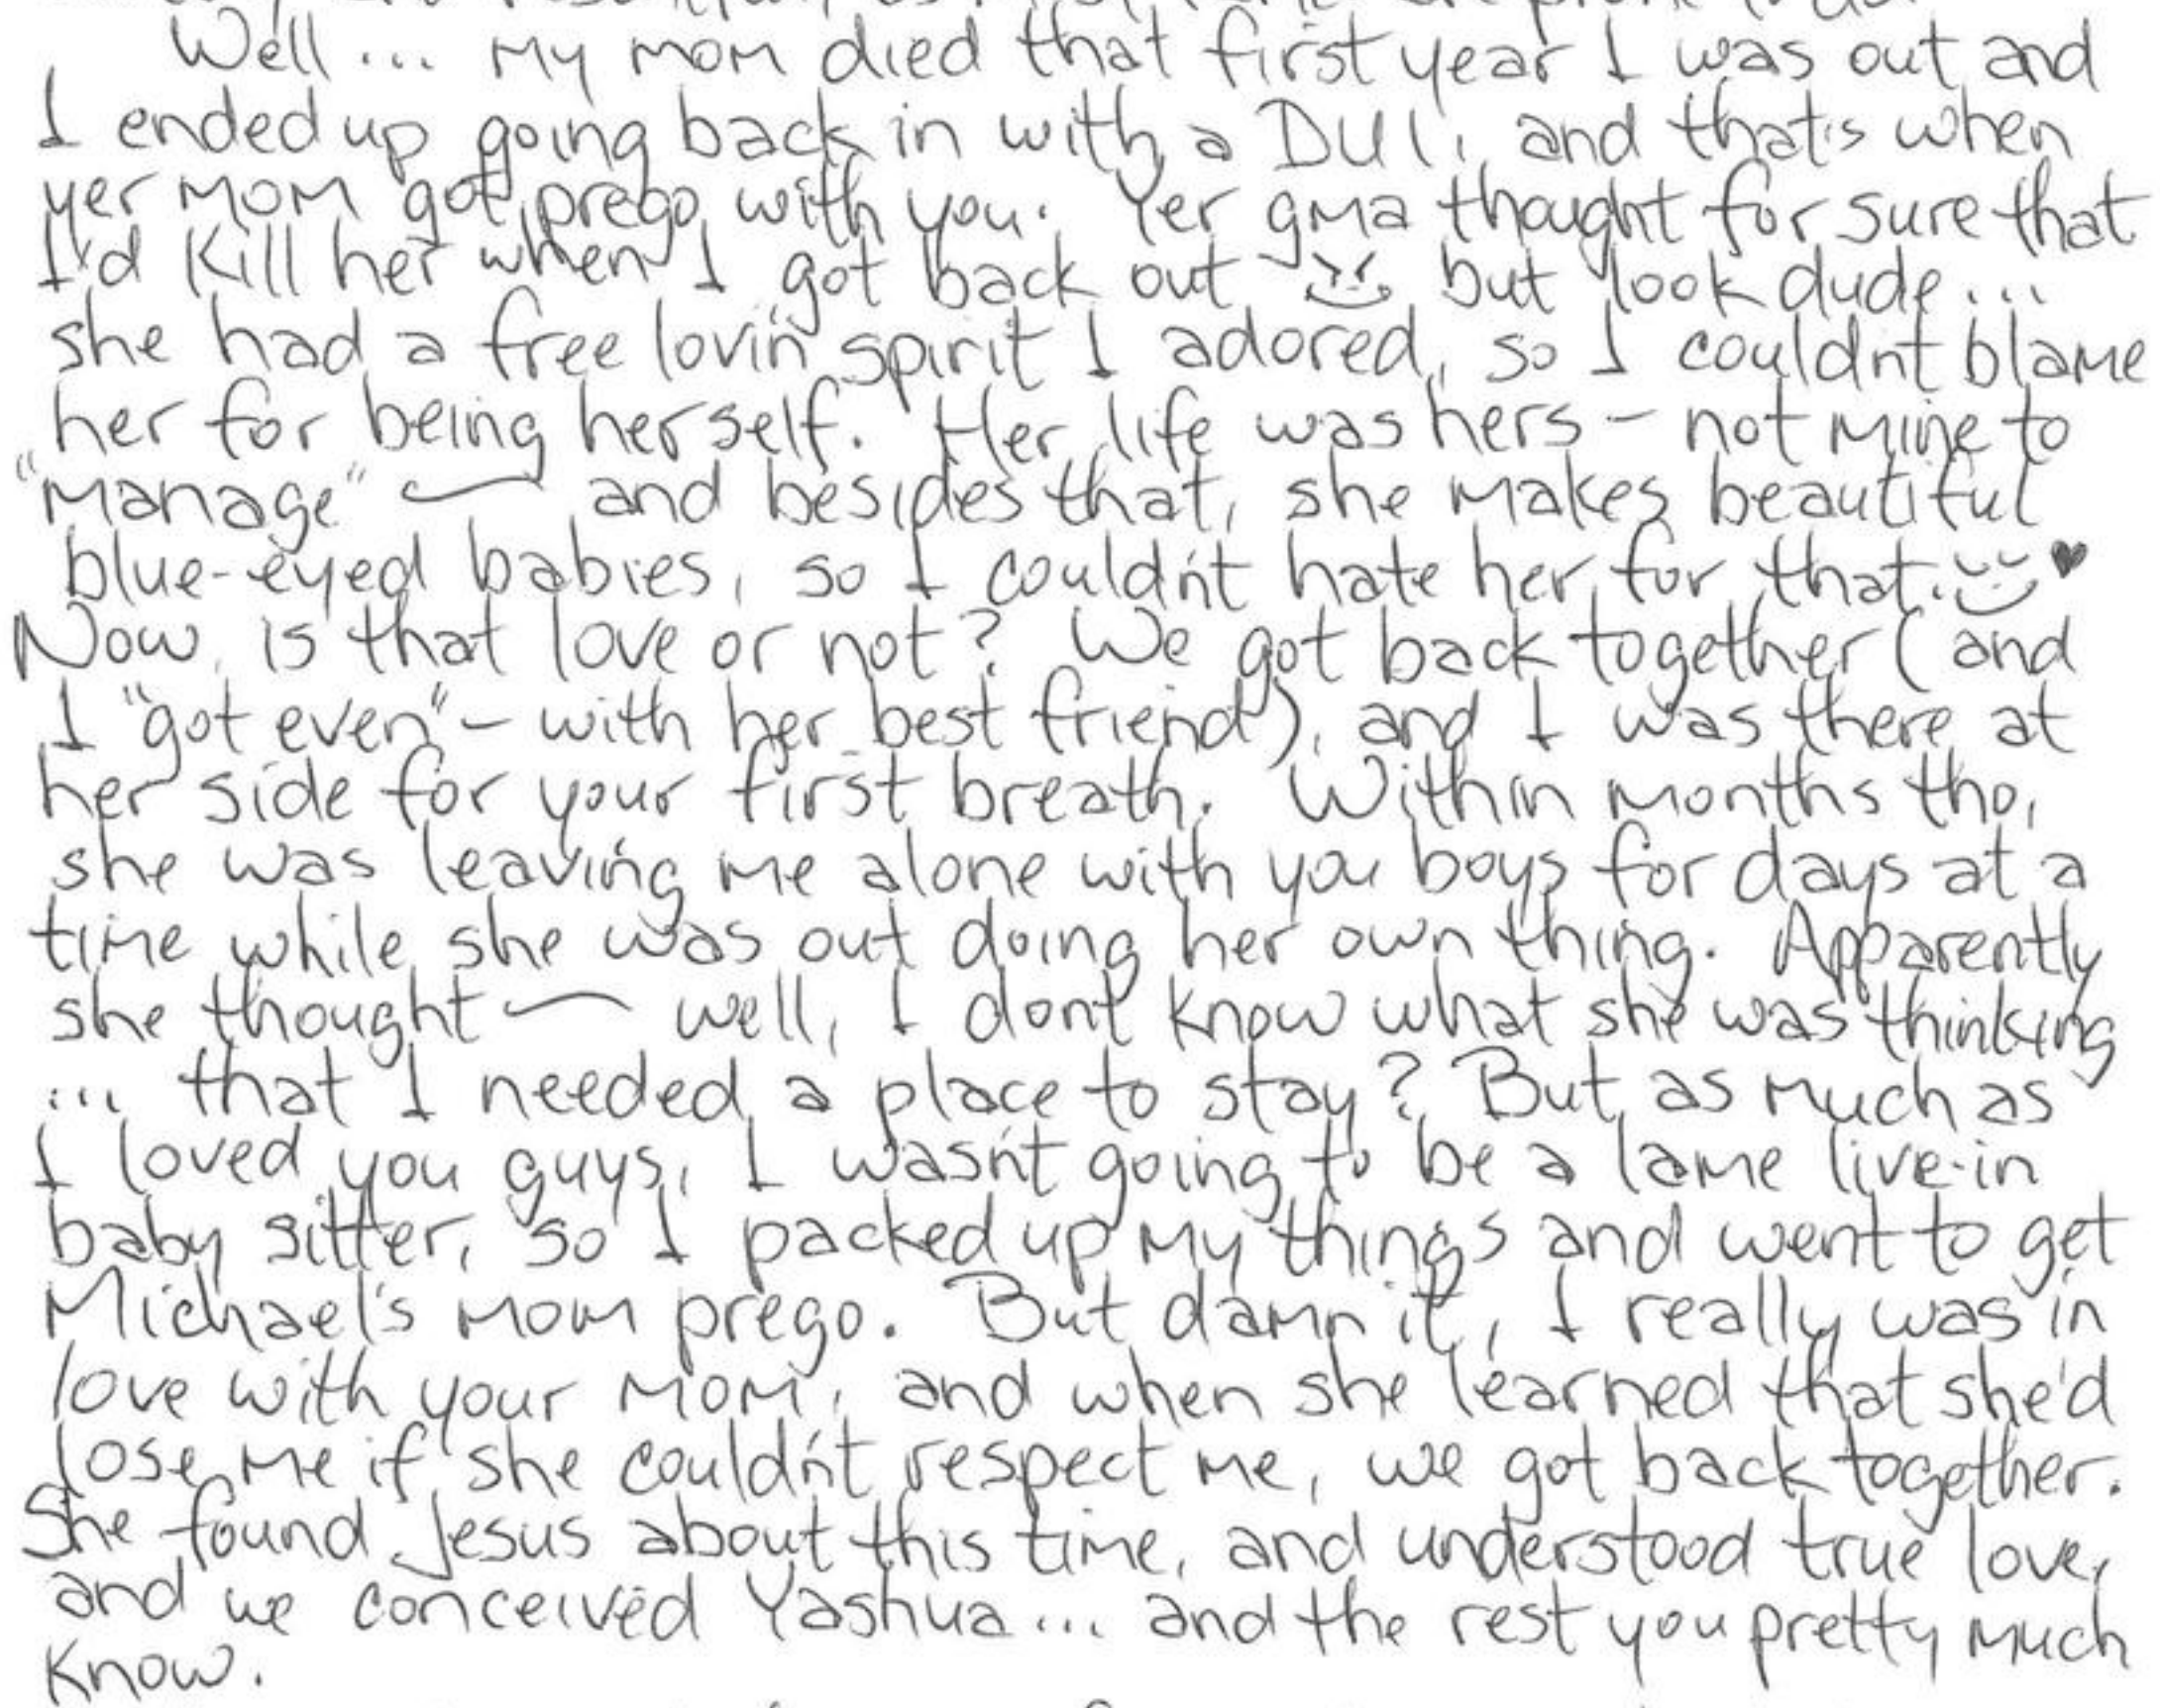 Well... my mom died that first year I was out and
I ended up going back in with a DUI, and that's when
yer mom got prego with you. Yer gma thought for sure that
I'd kill her when I got back out but look dude...
she had a free lovin' spirit I adored, so I couldn't blame
her for being herself. Her life was hers - not mine to
"manage" — and besides that, she makes beautiful
blue-eyed babies, so I couldn't hate her for that. ♥
Now, is that love or not? We got back together (and
I "got even" - with her best friend), and I was there at
her side for your first breath. Within months tho,
she was leaving me alone with you boys for days at a
time while she was out doing her own thing. Apparently
she thought — well, I don't know what she was thinking
... that I needed a place to stay? But as much as
I loved you guys, I wasn't going to be a lame live-in
baby sitter, so I packed up my things and went to get
Michael's mom prego. But damn it, I really was in
love with your mom, and when she learned that she'd
lose me if she couldn't respect me, we got back together.
She found Jesus about this time, and understood true love,
and we conceived Yashua... and the rest you pretty much
know.